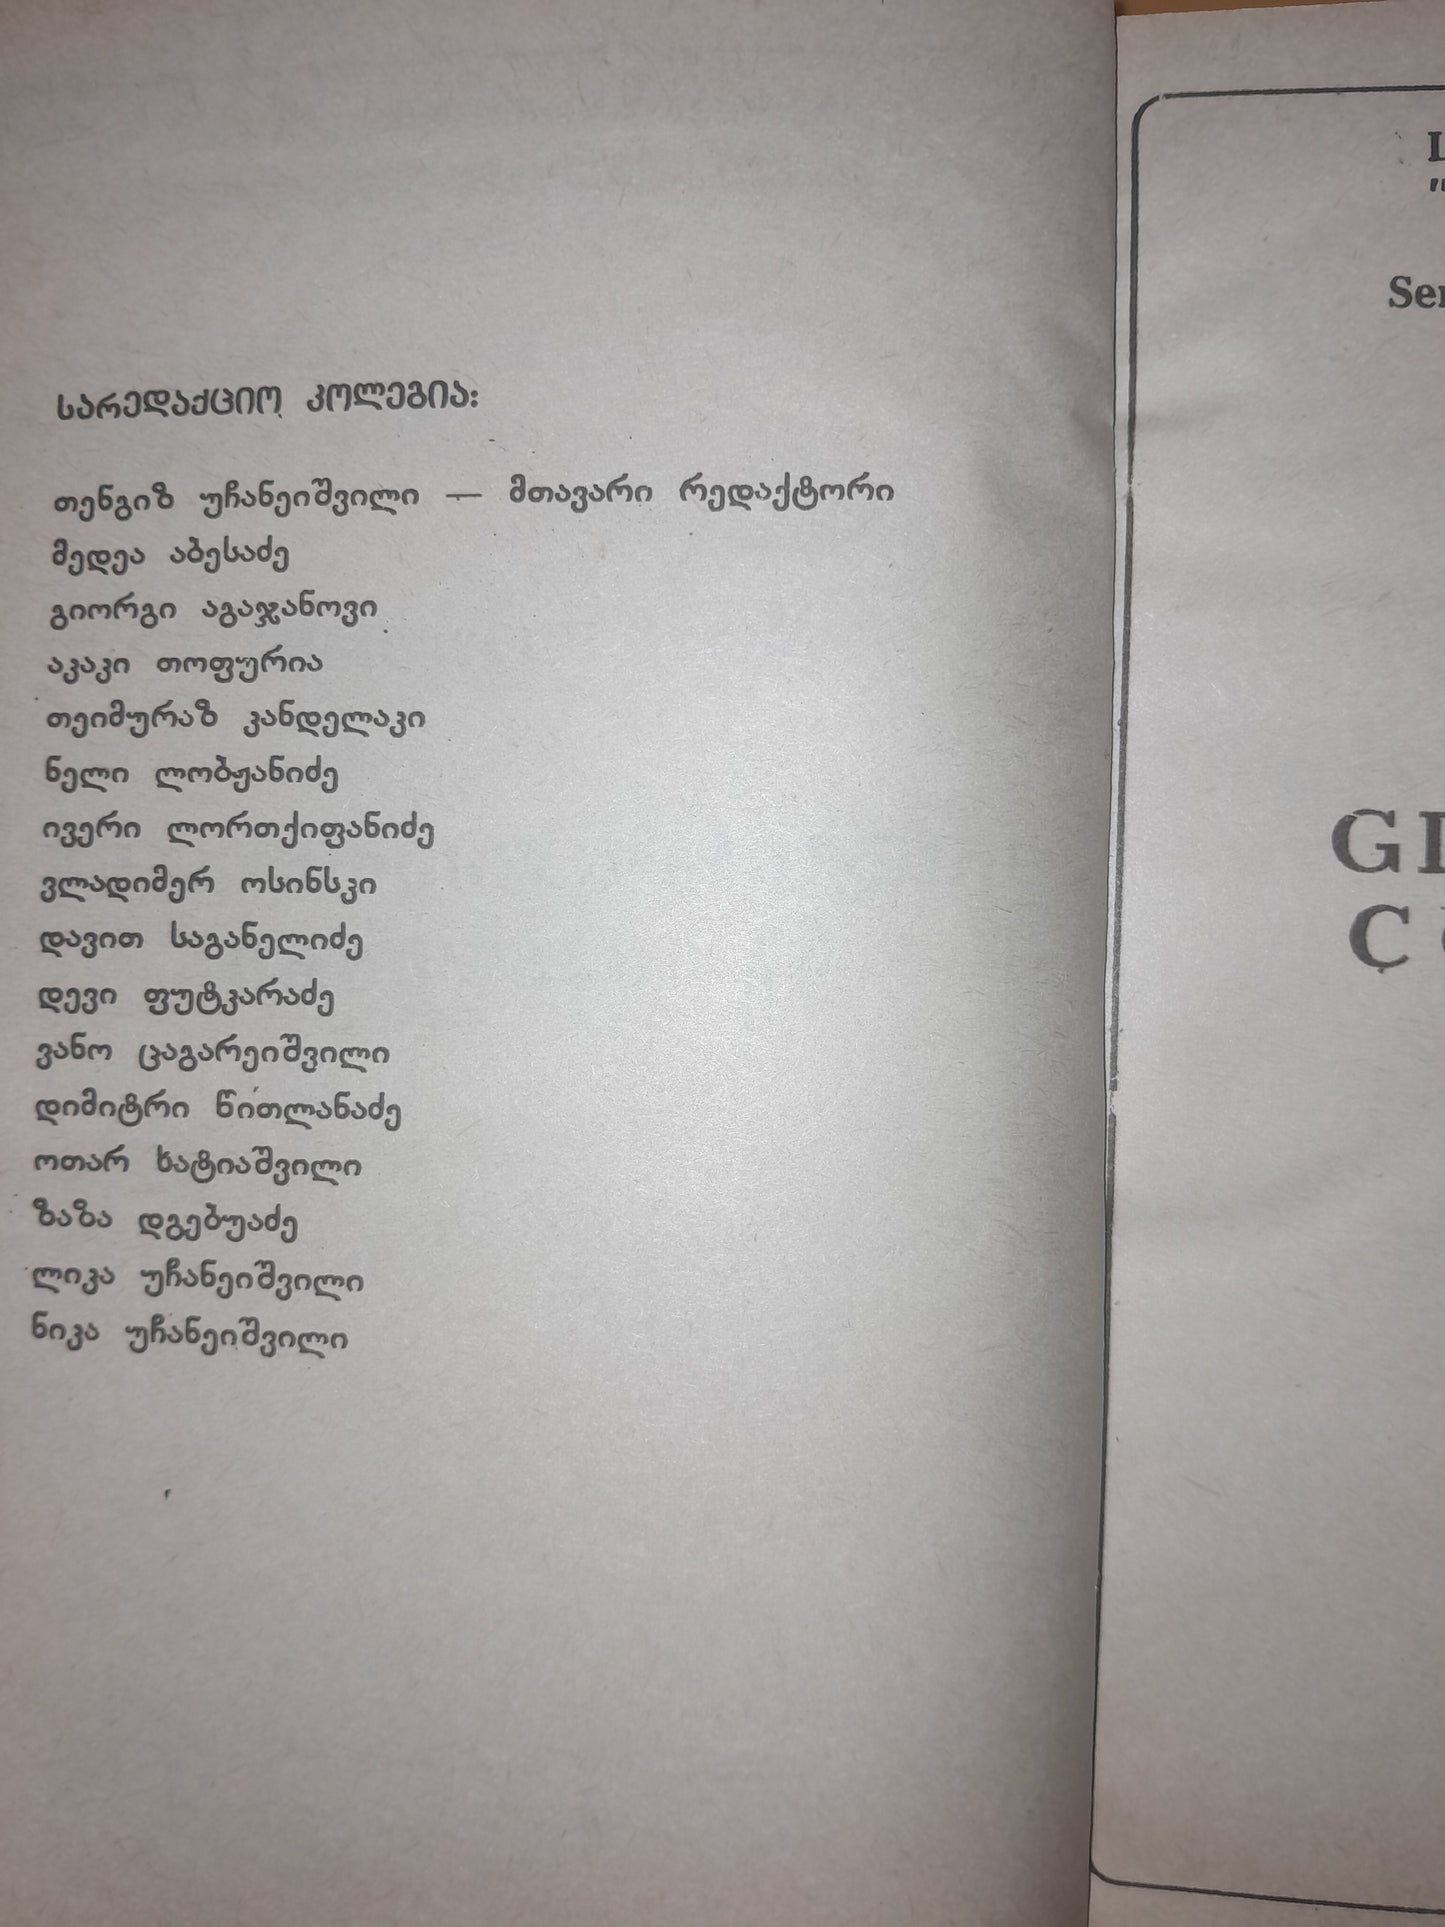 სარედაქციო კოლეგია:
თენგიზ უჩანეიშვილი — მთავარი რედაქტორი
მედეა აბესაძე
გიორგი აგაჯანოვი
აკაკი თოფურია
თეიმურაზ კანდელაკი
ნელი ლობჟანიძე
ივერი ლორთქიფანიძე
ვლადიმერ ოსინსკი
დავით საგანელიძე
დევი ფუტკარაძე
ვანო ცაგარეიშვილი
დიმიტრი წითლანაძე
ოთარ ხატიაშვილი
ზაზა დგებუაძე
ლიკა უჩანეიშვილი
ნიკა უჩანეიშვილი